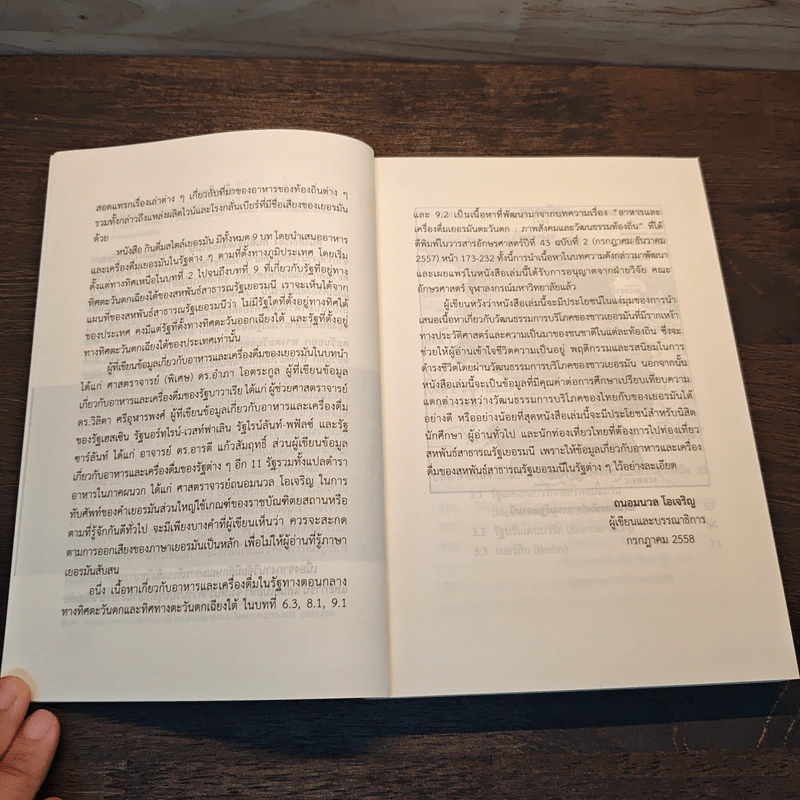 สอดแทรกเรื่องเล่าต่าง ๆ เกี่ยวกับที่มาของอาหารของท้องถิ่นต่าง ๆ
รวมทั้งกล่าวถึงแหล่งผลิตไวน์และโรงกลั่นเบียร์ที่มีชื่อเสียงของเยอรมัน
ด้วย
หนังสือ กินดื่มสไตล์เยอรมัน มีทั้งหมด 9 บท โดยนำเสนออาหาร
และเครื่องดื่มเยอรมันในรัฐต่าง ๆ ตามที่ตั้งทางภูมิประเทศ โดยเริ่ม
ตั้งแต่ทางทิศเหนือในบทที่ 2 ไปจนถึงบทที่ 9 ที่เกี่ยวกับรัฐที่อยู่ทาง
ทิศตะวันตกเฉียงใต้ของสหพันธ์สาธารณรัฐเยอรมนี เราจะเห็นได้จาก
แผนที่ของสหพันธ์สาธารณรัฐเยอรมนีว่า ไม่มีรัฐใดที่ตั้งอยู่ทางทิศใต้
ของประเทศ คงมีแต่รัฐที่ตั้งทางทิศตะวันออกเฉียงใต้ และรัฐที่ตั้งอยู่
ทางทิศตะวันตกเฉียงใต้ของประเทศเท่านั้น
ผู้ที่เขียนข้อมูลเกี่ยวกับอาหารและเครื่องดื่มของเยอรมันในบทนำ
ได้แก่ ศาสตราจารย์ (พิเศษ) ดร.อำภา โอตระกูล ผู้ที่เขียนข้อมูล
เกี่ยวกับอาหารและเครื่องดื่มของรัฐบาวาเรีย ได้แก่ ผู้ช่วยศาสตราจารย์
ดร.วิลิตา ศรีอุฬารพงศ์ ผู้ที่เขียนข้อมูลเกี่ยวกับอาหารและเครื่องดื่ม
ของรัฐเฮสเซิน รัฐนอร์ทไรน์-เวสท์ฟาเลิน รัฐไรน์ลันท์-พฟัลซ์ และรัฐ
ซาร์ลันท์ ได้แก่ อาจารย์ ดร.อารตี แก้วสัมฤทธิ์ ส่วนผู้เขียนข้อมูล
เกี่ยวกับอาหารและเครื่องดื่มของรัฐต่าง ๆ อีก 11 รัฐรวมทั้งแปลตำรา
อาหารในภาคผนวก ได้แก่ ศาสตราจารย์ถนอมนวล โอเจริญ ในการ
ทับศัพท์ของคำเยอรมันส่วนใหญ่ใช้เกณฑ์ของราชบัณฑิตยสถานหรือ
ตามที่รู้จักกันดีทั่วไป จะมีเพียงบางคำที่ผู้เขียนเห็นว่า ควรจะสะกด
ตามการออกเสียงของภาษาเยอรมันเป็นหลัก เพื่อไม่ให้ผู้อ่านที่รู้ภาษา
เยอรมันสับสน
อนึ่ง เนื้อหาเกี่ยวกับอาหารและเครื่องดื่มในรัฐทางตอนกลาง
ทางทิศตะวันตกและทิศทางตะวันตกเฉียงใต้ ในบทที่ 6.3, 8.1, 9.1
และ 9.2 เป็นเนื้อหาที่พัฒนามาจากบทความเรื่อง "อาหารและ
เครื่องดื่มเยอรมันตะวันตก : ภาพสังคมและวัฒนธรรมท้องถิ่น" ที่ได้
ตีพิมพ์ในวารสารอักษรศาสตร์ปีที่ 43 ฉบับที่ 2 (กรกฎาคม-ธันวาคม
2557) หน้า 173-232 ทั้งนี้การนำเนื้อหาในบทความดังกล่าวมาพัฒนา
และเผยแพร่ในหนังสือเล่มนี้ได้รับการอนุญาตจากฝ่ายวิจัย คณะ
อักษรศาสตร์ จุฬาลงกรณ์มหาวิทยาลัยแล้ว
ผู้เขียนหวังว่าหนังสือเล่มนี้จะมีประโยชน์ในแง่มุมของการนำ
เสนอเนื้อหาเกี่ยวกับวัฒนธรรมการบริโภคของชาวเยอรมันที่มีรากเหง้า
ทางประวัติศาสตร์และความเป็นมาของชนชาติในแต่ละท้องถิ่น ซึ่งจะ
ช่วยให้ผู้อ่านเข้าใจชีวิตความเป็นอยู่ พฤติกรรมและรสนิยมในการ
ดำรงชีวิตโดยผ่านวัฒนธรรมการบริโภคของชาวเยอรมัน นอกจากนั้น
หนังสือเล่มนี้จะเป็นข้อมูลที่มีคุณค่าต่อการศึกษาเปรียบเทียบความ
แตกต่างระหว่างวัฒนธรรมการบริโภคของไทยกับของเยอรมันได้
อย่างดี หรืออย่างน้อยที่สุดหนังสือเล่มนี้จะมีประโยชน์สำหรับนิสิต
นักศึกษา ผู้อ่านทั่วไป และนักท่องเที่ยวไทยที่ต้องการไปท่องเที่ยว
สหพันธ์สาธารณรัฐเยอรมนี เพราะให้ข้อมูลเกี่ยวกับอาหารและเครื่อง
ดื่มของสหพันธ์สาธารณรัฐเยอรมนีในรัฐต่าง ๆ ไว้อย่างละเอียด
ถนอมนวล โอเจริญ
ผู้เขียนและบรรณาธิการ
กรกฎาคม 2558